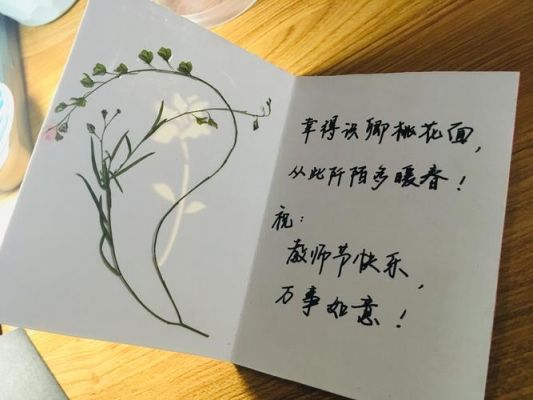 幸得识卿桃花面,
从此阡陌多暖春!
祝:
教师节快乐,
万事如意!